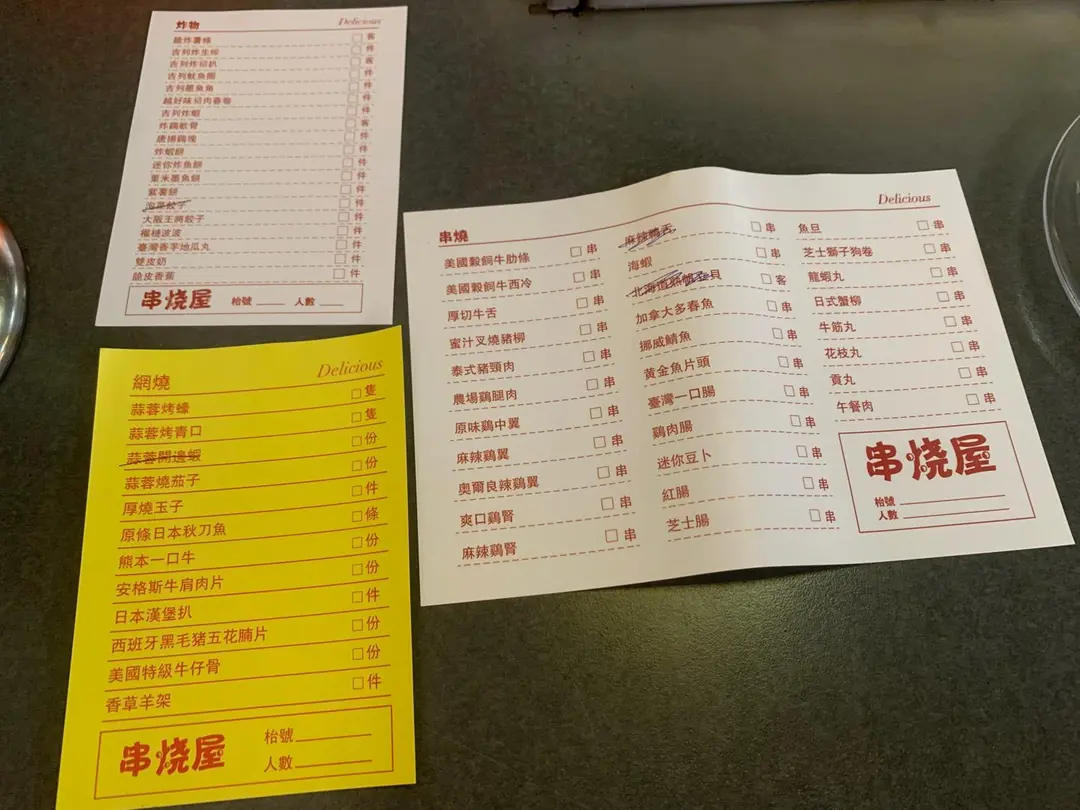 炸物 Delicious
脆炸薯條 □ 客
吉列炸生蠔 □ 件
吉列炸切扒 □ 客
吉列魷魚圈 □ 件
吉列墨魚角 □ 件
越好味切肉春卷 □ 件
吉列炸蝦 □ 件
炸鷄軟骨 □ 客
唐揚鷄塊 □ 件
炸蝦餅 □ 件
迷你炸魚餅 □ 件
粟米墨魚餅 □ 件
紫薯餅 □ 件
泡菜餃子 □ 件
大阪王將餃子 □ 件
榴槤波波 □ 件
臺灣香芋地瓜丸 □ 件
雙皮奶 □ 件
脆皮香蕉 □ 件
串烧屋 枱號 人數
網燒 Delicious
蒜蓉烤蠔 □ 隻
蒜蓉烤青口 □ 隻
蒜蓉開邊蝦 □ 份
蒜蓉燒茄子 □ 份
厚燒玉子 □ 件
原條日本秋刀魚 □ 條
熊本一口牛 □ 份
安格斯牛肩肉片 □ 份
日本漢堡扒 □ 件
西班牙黑毛猪五花腩片 □ 份
美國特級牛仔骨 □ 份
香草羊架 □ 件
串烧屋
枱號
人數
串燒 Delicious
美國穀飼牛肋條 □ 串
美國穀飼牛西冷 □ 串
厚切牛舌 □ 串
蜜汁叉燒豬柳 □ 串
泰式豬頸肉 □ 串
農場鷄腿肉 □ 串
原味鷄中翼 □ 串
麻辣鷄翼 □ 串
奧爾良辣鷄翼 □ 串
爽口鷄腎 □ 串
麻辣鷄腎 □ 串
麻辣鴨舌 □ 串
海蝦 □ 串
北海道熱帶金貝 □ 客
加拿大多春魚 □ 串
挪威鯖魚 □ 串
黃金魚片頭 □ 串
臺灣一口腸 □ 串
鷄肉腸 □ 串
迷你豆卜 □ 串
紅腸 □ 串
芝士腸 □ 串
魚旦 □ 串
芝士獅子狗卷 □ 串
龍蝦丸 □ 串
日式蟹柳 □ 串
牛筋丸 □ 串
花枝丸 □ 串
貢丸 □ 串
午餐肉 □ 串
串烧屋
枱號
人數